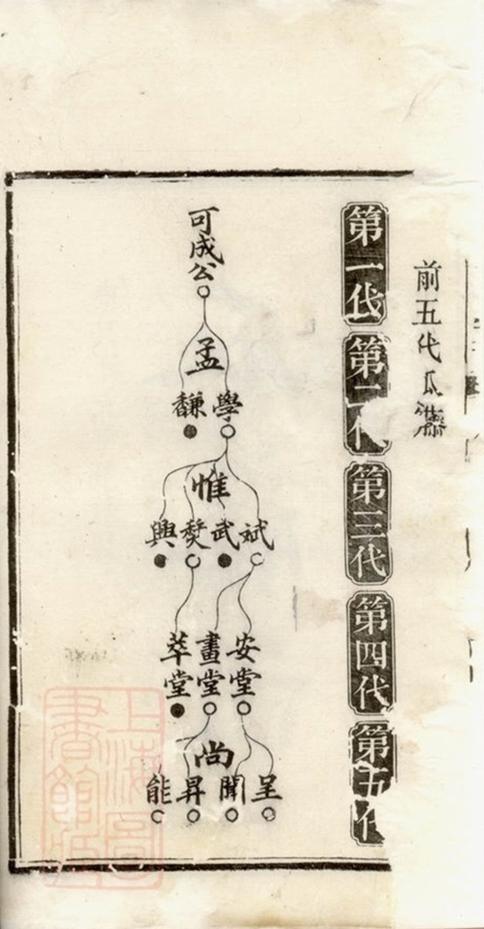 前五代瓜
第一代
第二代
第三代
第四代
第五代
可成公
孟
學 馦
惟
斌 武 興
安堂 畫堂 萃堂
尚
呈 聞 昇 能
上海圖
書館藏